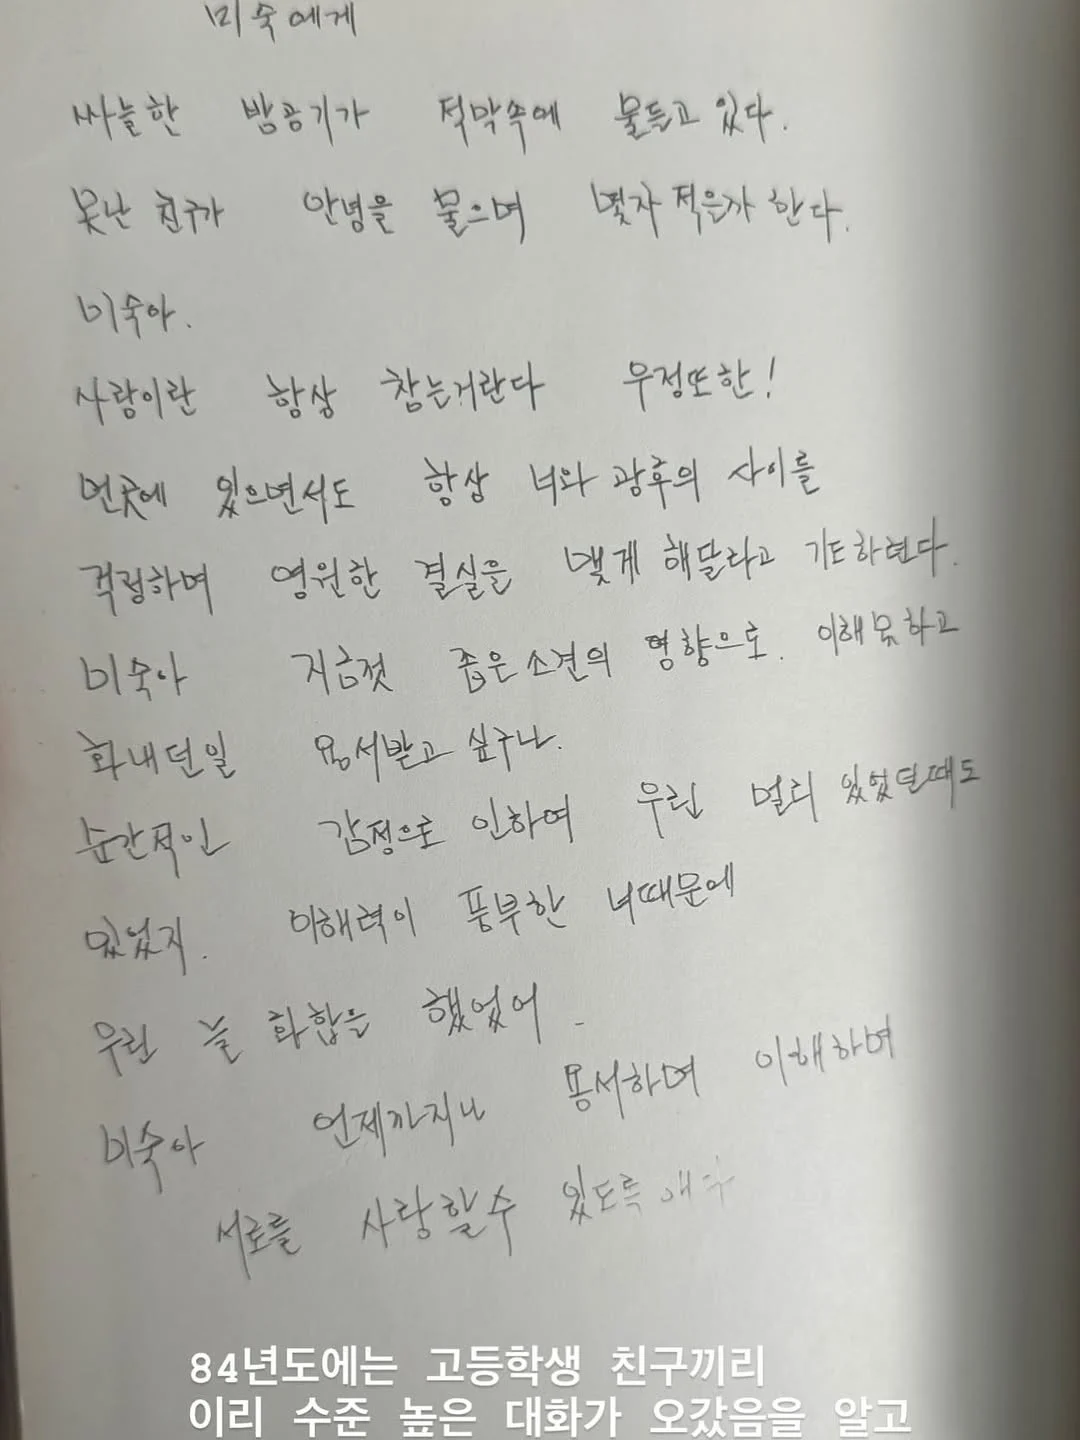 미숙에게
싸늘한 밤공기가 적막속에 물들고 있다.
못난 친구가 안녕을 물으며 몇자 적은까 한다.
미숙아.
사랑이란 항상 참는거란다 우정또한!
먼곳에 있으면서도 항상 너와 광후의 사이를
걱정하며 영원한 결실을 맺게 해달라고 기도하련다.
미숙아 지금껏 좁은 소견의 영향으로. 이해못하고
화내던일 용서받고 싶구나.
순간적인 감정으로 인하여 우린 멀리 있었던때도
있었지. 이해력이 풍부한 너때문에
우린 늘 화합을 했었어.
미숙아 언제까지나 용서하며 이해하며
서로를 사랑할수 있도록
84년도에는 고등학생 친구끼리
이리 수준 높은 대화가 오갔음을 알고